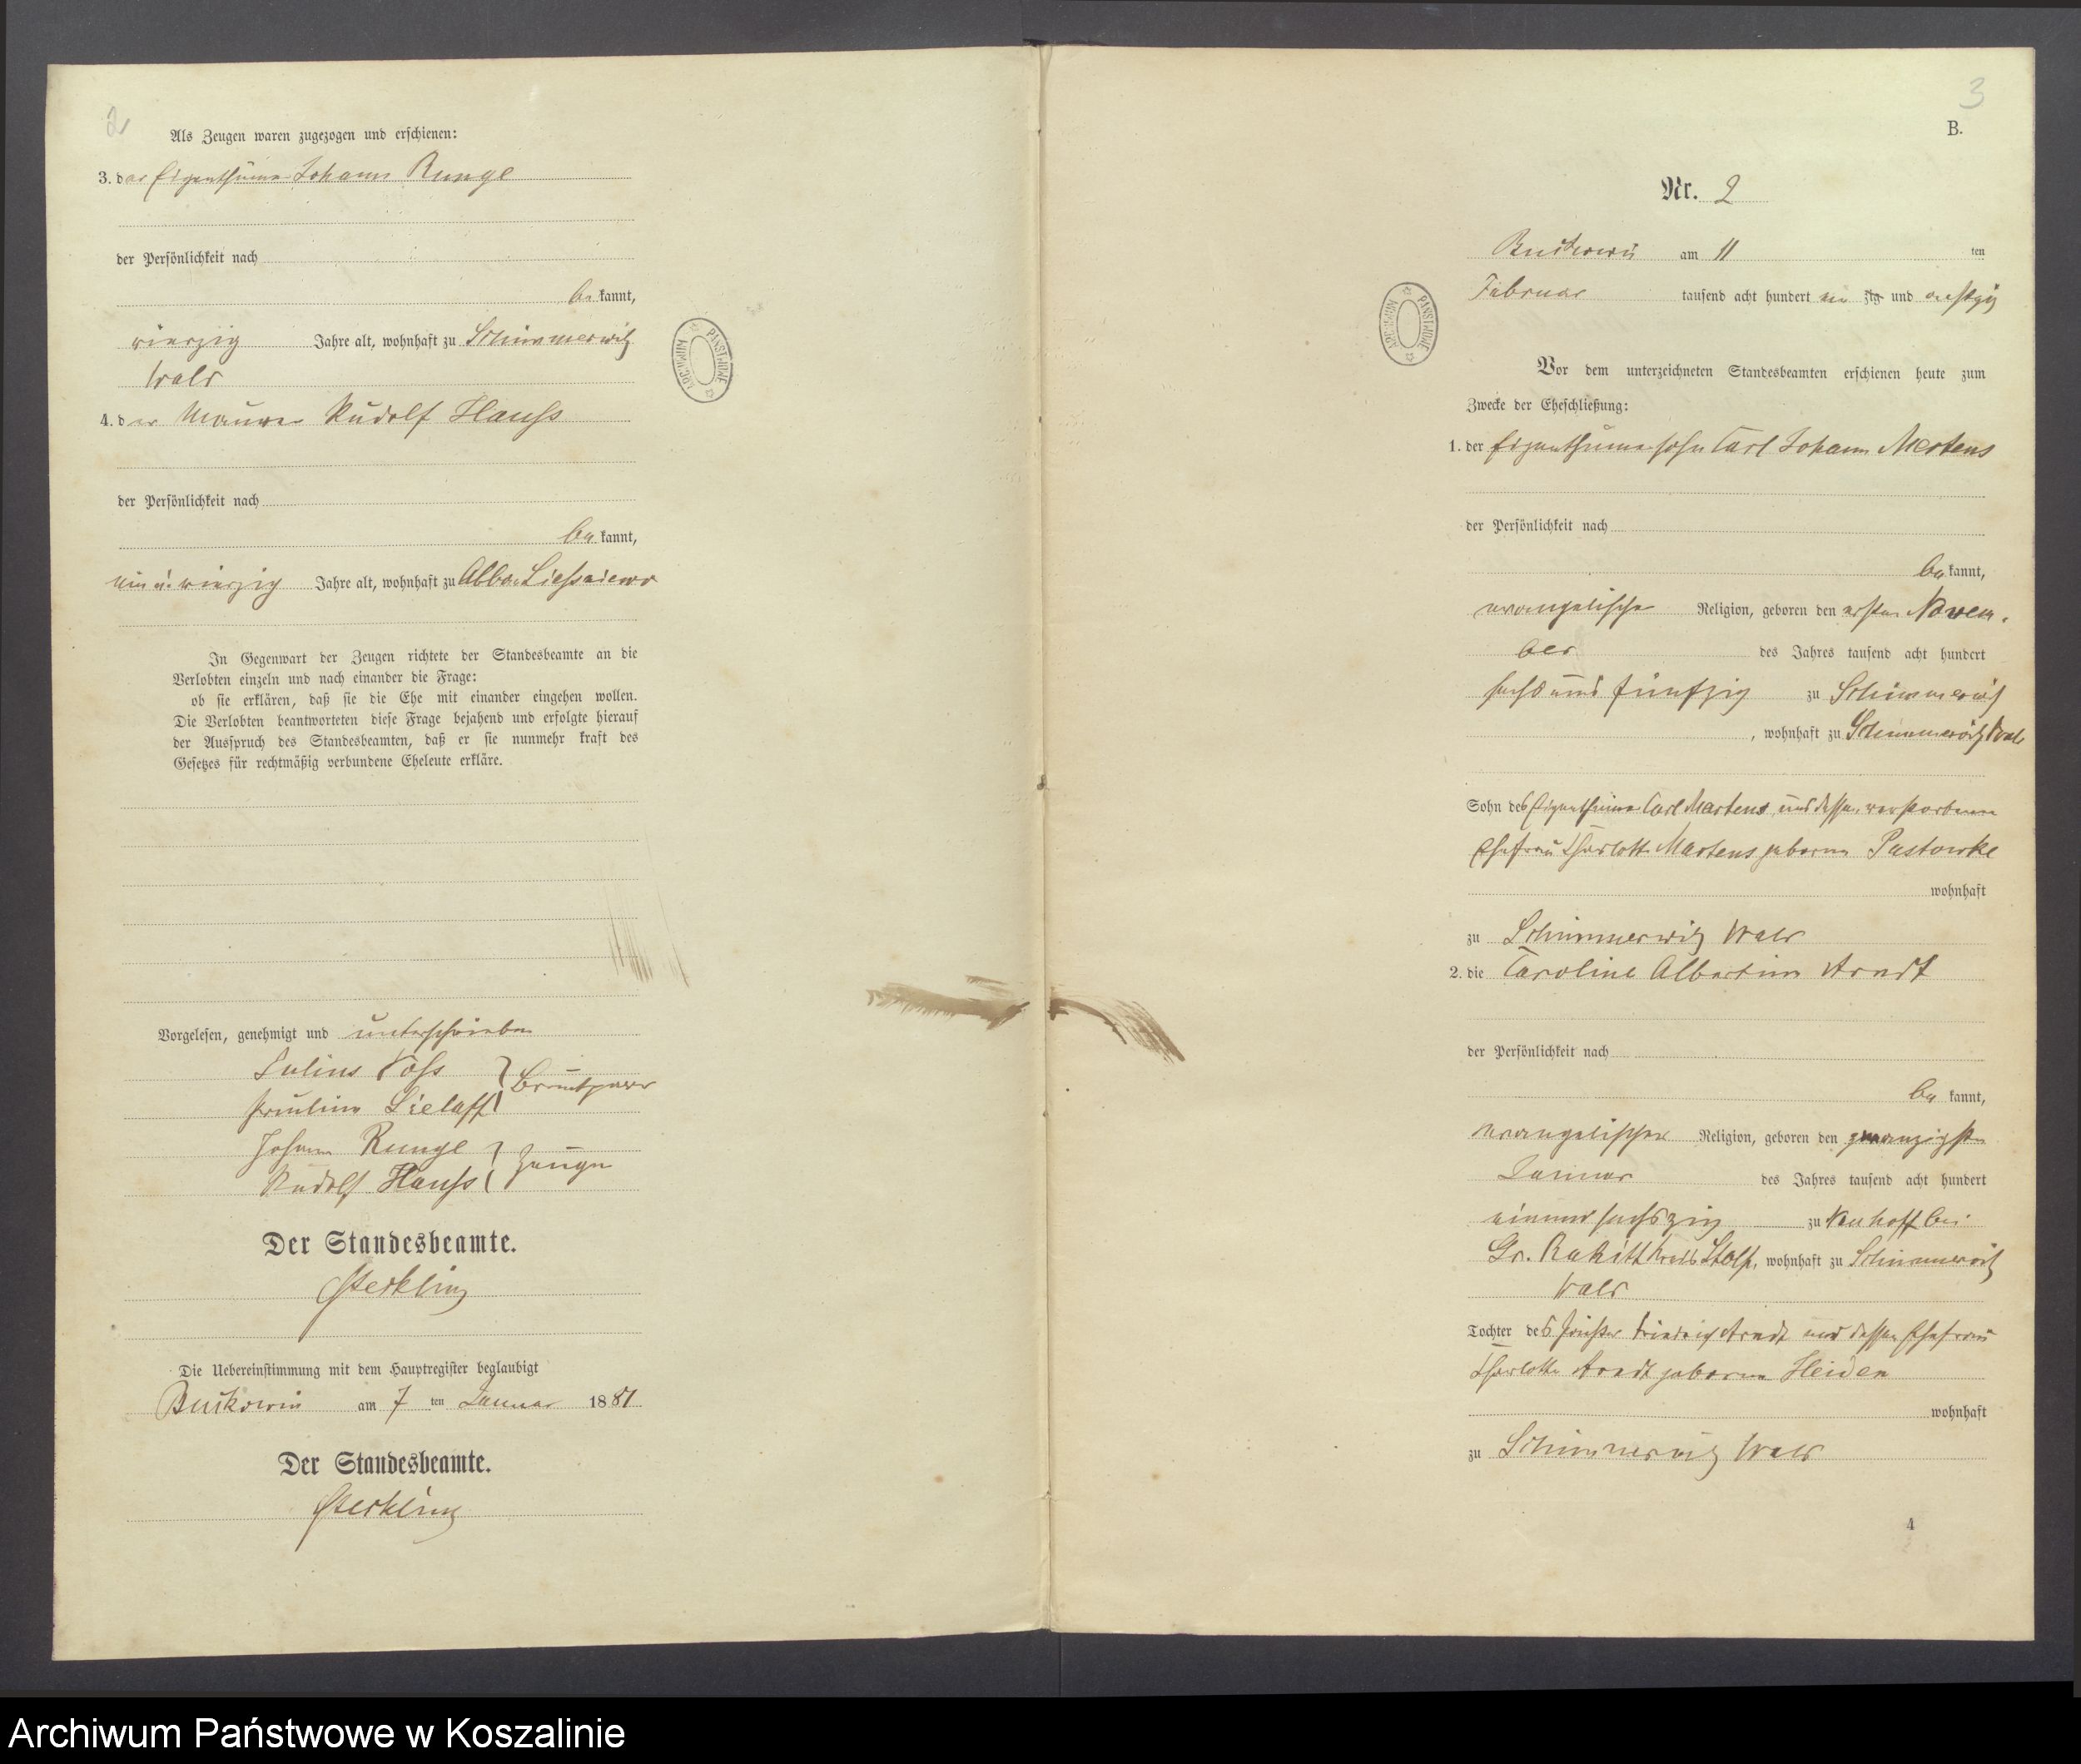 2
Als Zeugen waren zugezogen und erschienen:
3. der Eigenthümer Johann Runge
der Persönlichkeit nach
be kannt,
vierzig Jahre alt, wohnhaft zu Schimmerwitz
Wald
4. der Maurer Rudolf Hauss
der Persönlichkeit nach
be kannt,
vierzig Jahre alt, wohnhaft zu
In Gegenwart der Zeugen richtete der Standesbeamte an die
Verlobten einzeln und nach einander die Frage:
ob sie erklären, daß sie die Ehe mit einander eingehen wollen.
Die Verlobten beantworteten diese Frage bejahend und erfolgte hierauf
der Ausspruch des Standesbeamten, daß er sie nunmehr kraft des
Gesetzes für rechtmäßig verbundene Eheleute erkläre.
Vorgelesen, genehmigt und unterschrieben
Julius Voss } Brautpaar
Pauline Lielaff
Johann Runge } Zeugen
Rudolf Hauss
Der Standesbeamte.
Die Uebereinstimmung mit dem Hauptregister beglaubigt
Buckowin am 7 ten Januar 1881
Der Standesbeamte.
3
B.
Nr. 2
Buckowin am 11 ten
Februar tausend acht hundert ein zig und achtzig
Vor dem unterzeichneten Standesbeamten erschienen heute zum
Zwecke der Eheschließung:
1. der Eigenthümersohn Carl Johann Mertens
der Persönlichkeit nach
be kannt,
evangelischer Religion, geboren den ersten Novem-
ber des Jahres tausend acht hundert
sechs und fünfzig zu Schimmerwitz
, wohnhaft zu Schimmerwitz Wald
Sohn des Eigenthümer Carl Martens und dessen verstorbenen
Ehefrau Charlotte Martens geborene Pastowke
wohnhaft
zu Schimmerwitz Wald
2. die Caroline Albertine Arndt
der Persönlichkeit nach
be kannt,
evangelischer Religion, geboren den zwanzigsten
Januar des Jahres tausend acht hundert
einundsechszig zu Neuhoff bei
Gr. Rakitt Kreis Stolp, wohnhaft zu Schimmerwitz
Wald
Tochter des Friedrich Arndt und dessen Ehefrau
Charlotte Arndt geborene Heiden
wohnhaft
zu Schimmerwitz Wald
4
ARCHIWUM PAŃSTWOWE
ARCHIWUM PAŃSTWOWE
Archiwum Państwowe w Koszalinie